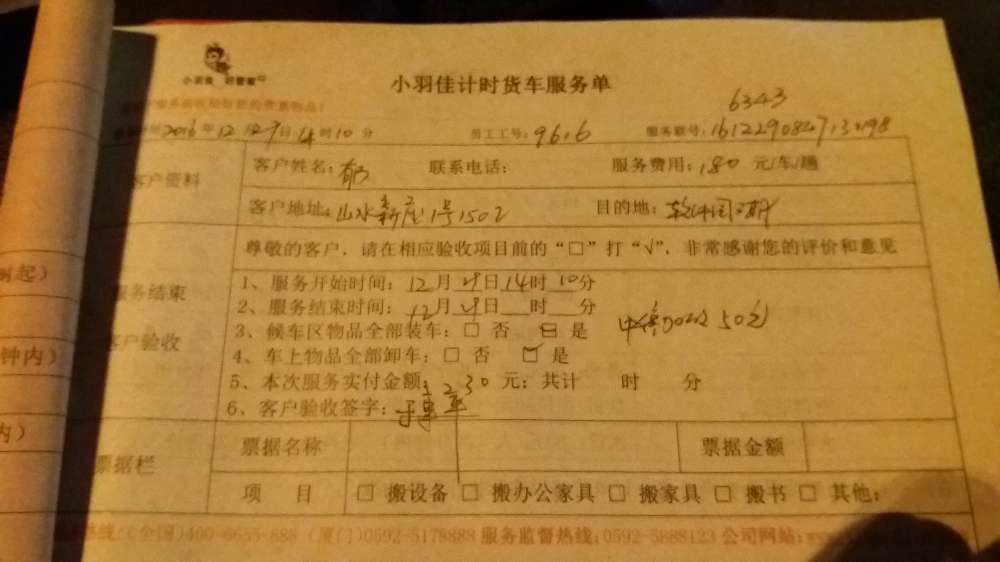 小羽佳 好管家
小羽佳计时货车服务单
6343
2016年12月29日14时10分 员工工号：9616 服务联号：
客户资料 客户姓名： 联系电话： 服务费用：180元/车/趟
客户地址：山水 1号1502 目的地：二期
尊敬的客户，请在相应验收项目前的“□”打“√”，非常感谢您的评价和意见
刚起）
服务结束
1、服务开始时间：12月29日14时10分
2、服务结束时间：12月29日 时 分
客户验收
3、候车区物品全部装车：□ 否 □ 是 50元
钟内）
4、车上物品全部卸车：□ 否 ☑ 是
5、本次服务实付金额：230元；共计 时 分
6、客户验收签字：
内）
票据栏 票据名称 票据金额
项 目 □ 搬设备 □ 搬办公家具 □ 搬家具 □ 搬书 □ 其他：
热线：(全国)400-6655-888 (厦门)0592-5178888 服务监督热线：0592-5888123 公司网站：